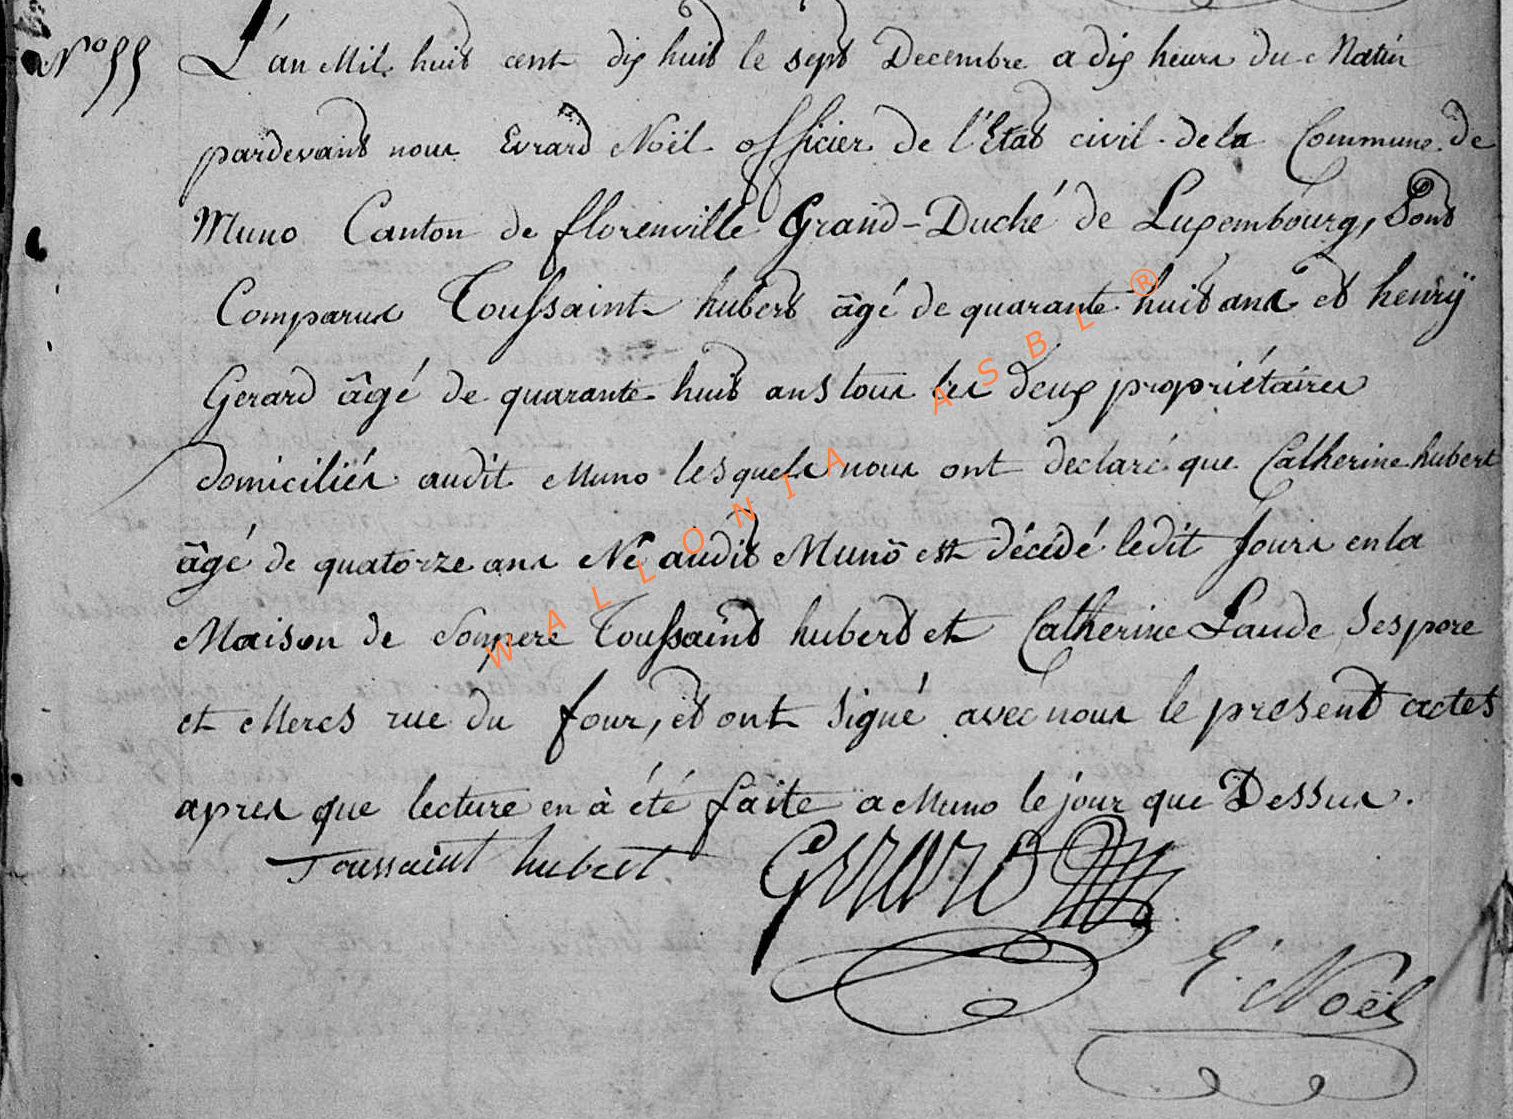 N° 55 L'an Mil huit cent dix huit le sept Decembre a dix heures du Matin
pardevant nous Evrard Noël officier de l'Etat civil de la Commune de
Muno Canton de florenville Grand-Duché de Luxembourg, Sont
Comparus Toussaint hubert âgé de quarante huit ans et henrÿ
Gerard âgé de quarante huit ans tous les deux propriétaires
domiciliés audit Muno lesquels nous ont declaré que Catherine hubert
âgé de quatorze ans Né audit Muno est décédé ledit Jours en la
Maison de Son pere Toussaint hubert et Catherine Laude Ses pere
et Meres rue du four, et ont Signé avec nous le present actes
apres que lecture en à été faite a Muno le jour que Dessus.
Toussaint hubert Gerard
E. Noël
WALLONIA ASBL ®